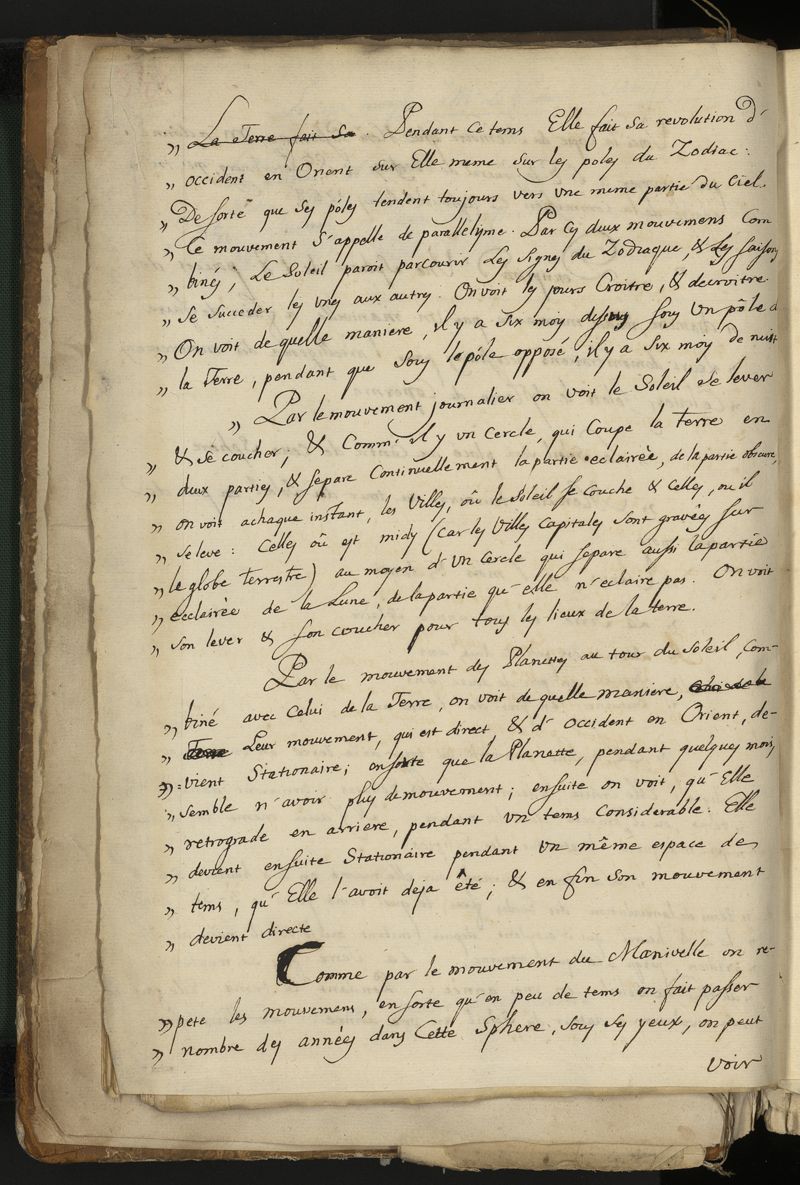 „ La Terre fait Sa. Pendant ce tems Elle fait sa revolution d'
„ occident en Orient sur Elle meme sur les poles du Zodiac:
„ De sorte que Ses póles tendent toujours vers une meme partie du Ciel.
„ Ce mouvement S'appelle de parallelisme. Par Ces deux mouvemens Com
„ binés; Le Soleil paroit parcourir Les signes du Zodiaque, & Les saisons
„ se succeder les unes aux autres. On voit les jours Croitre, & decroitre.
„ On voit de quelle maniere, il y a six mois de jours sous un pôle d
„ la Terre, pendant que sous le pôle opposé, il y a six mois de nuit
„ Par le mouvement journalier on voit le Soleil se lever
„ & se coucher; & Comm'il y un Cercle, qui Coupe la terre en
„ deux parties, & separe Continuellement la partie eclairée, de la partie obscure,
„ on voit achaque instant, les Villes, oû le Soleil se couche & Celles, ou il
„ se leve: Celles oû est midy (car les Villes Capitales sont gravées sur
„ le globe terrestre) au moyen d'un Cercle qui separe aussi la partie
„ ecclairée de la Lune, de la partie qu'elle n'eclaire pas. On voit
„ son lever & son coucher pour tous les lieux de la terre.
Par le mouvement des Planettes au tour du Soleil, Com-
„ biné avec Celui de la Terre, on voit de quelle maniere,
„ Terre Leur mouvement, qui est direct & d'occident en Orient, de-
„ =vient Stationaire; ensorte que la Planette, pendant quelques mois
„ semble n'avoir plus de mouvement; ensuite on voit, qu'Elle
„ retrograde en arriere, pendant un tems Considerable. Elle
„ devient ensuite Stationaire pendant un même espace de
„ tems, qu'Elle l'avoit deja été; & en fin son mouvement
„ devient directe
Comme par le mouvement du Manivelle on re-
„ pete les mouvemens, ensorte qu'en peu de tems on fait passer
„ nombre des années dans Cette Sphere, sous ses yeux, on peut
voir